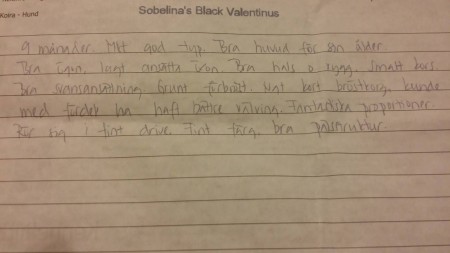 Koira - Hund
Sobelina's Black Valentinus
9 månader. Mkt god typ. Bra huvud för sin ålder.
Bra ögon, högt ansatta öron. Bra hals o rygg. Smått kors.
bra svansansättning. Grunt förbröst. Ngt kort bröstkorg, kunde
med fördel ha haft bättre välvning. Fantastiska proportioner.
Rör sig i fint driv. Fint färg, bra pälsstruktur.